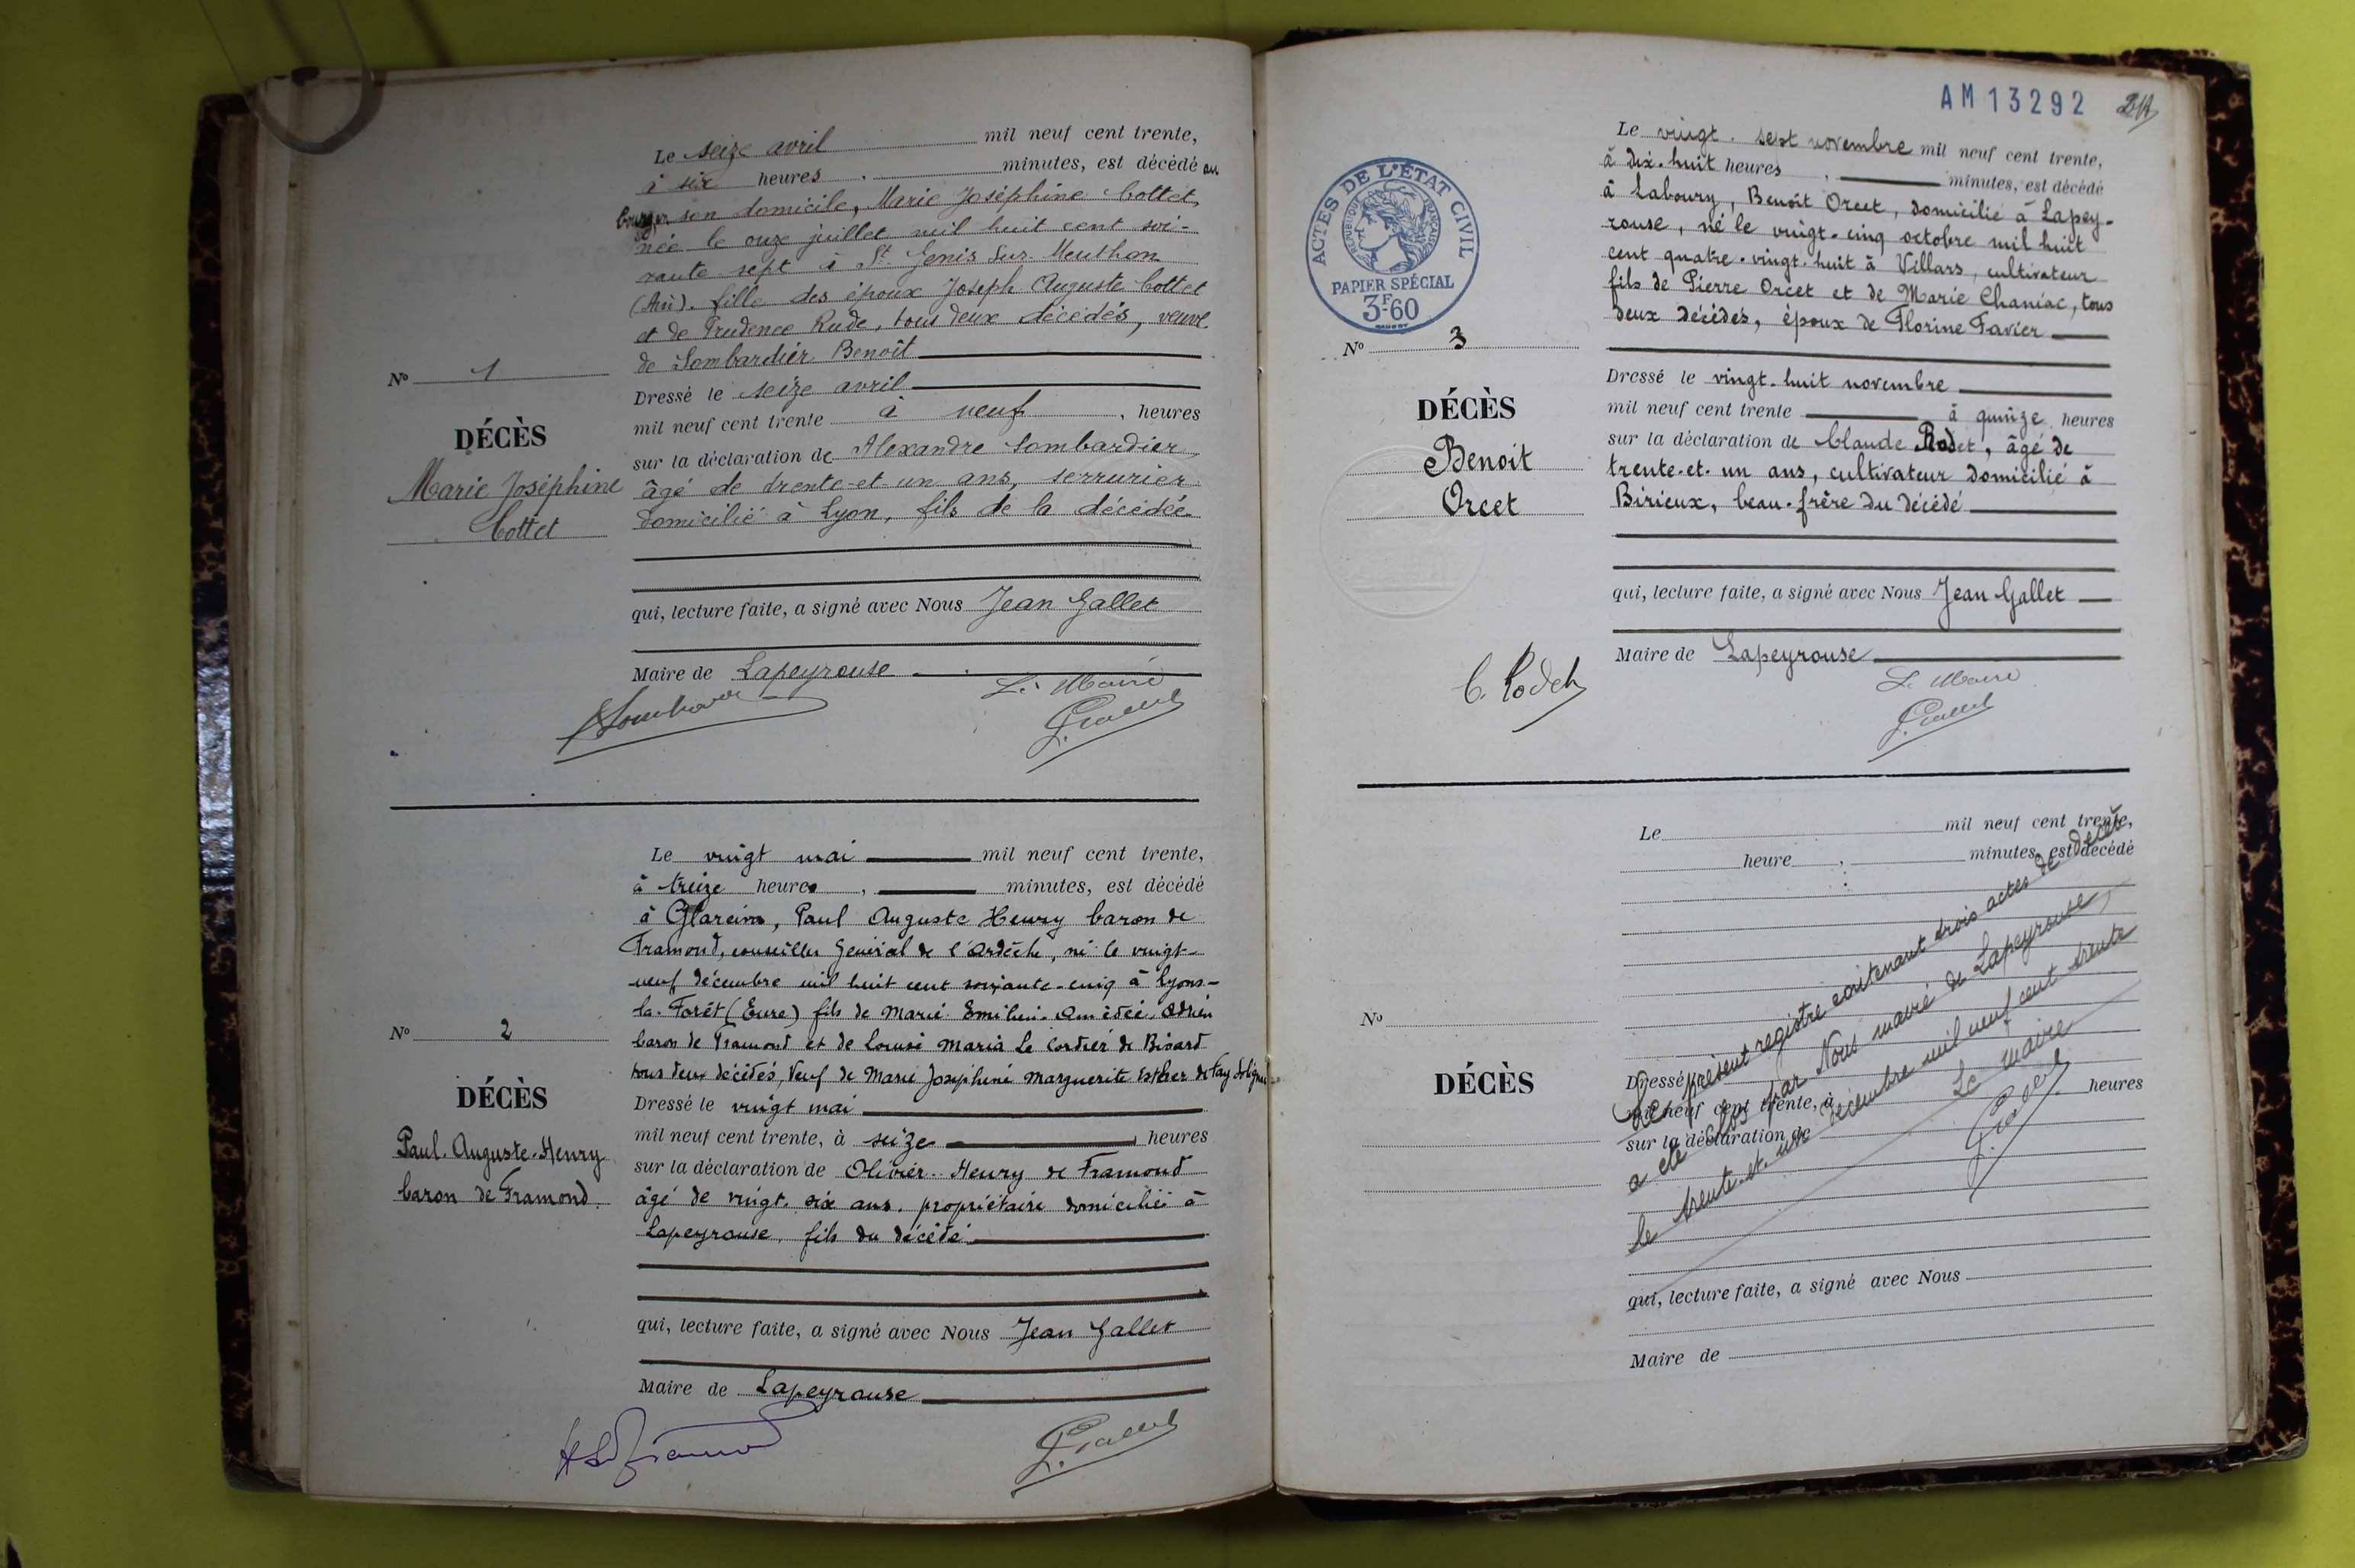 Le seize avril mil neuf cent trente,
à six heures minutes, est décédé au
bourg en son domicile, Marie Joséphine Cottet,
née le onze juillet mil huit cent soi-
xante sept à St Genis sur Menthon
(Ain). fille des époux Joseph Auguste Cottet
et de Prudence Rude, tous deux décédés, veuve
de Lombardier Benoît
Nº 1
DÉCÈS
Marie Joséphine
Cottet
Dressé le seize avril
mil neuf cent trente à neuf heures
sur la déclaration de Alexandre Lombardier
âgé de trente-et-un ans, serrurier
domicilié à Lyon, fils de la décédée
qui, lecture faite, a signé avec Nous Jean Gallet
Maire de Lapeyrouse
Le Maire
J. Gallet
Le vingt mai mil neuf cent trente,
à treize heures, minutes, est décédé
à Glareins, Paul Auguste Henry baron de
Framond, conseiller Général de l'Ardèche, né le vingt-
neuf décembre mil huit cent soixante-cinq à Lyons-
la-Forêt (Eure) fils de Marie Emilien Amédée Adrien
baron de Framond et de Louise Maria Le Cordier de Bigard
tous deux décédés, Veuf de Marie Joséphine Marguerite Esther de Fay Solignac
Nº 2
DÉCÈS
Paul-Auguste-Henry
baron de Framond.
Dressé le vingt mai
mil neuf cent trente, à seize heures
sur la déclaration de Olivier-Henry de Framond
âgé de vingt-six ans, propriétaire domicilié à
Lapeyrouse, fils du décédé
qui, lecture faite, a signé avec Nous Jean Gallet
Maire de Lapeyrouse
J. Gallet
AM13292
ACTES DE L'ÉTAT CIVIL
RÉPUBLIQUE FRANÇAISE
PAPIER SPÉCIAL
3F60
Le vingt-sept novembre mil neuf cent trente,
à dix-huit heures, minutes, est décédé
à Laboury, Benoît Orcet, domicilié à Lapey-
rouse, né le vingt-cinq octobre mil huit
cent quatre-vingt-huit à Villars, cultivateur
fils de Pierre Orcet et de Marie Chaniac, tous
deux décédés, époux de Florine Favier
Nº 3
DÉCÈS
Benoit
Orcet
Dressé le vingt-huit novembre
mil neuf cent trente à quinze heures
sur la déclaration de Claude Rodet, âgé de
trente-et-un ans, cultivateur domicilié à
Birieux, beau-frère du décédé
qui, lecture faite, a signé avec Nous Jean Gallet
Maire de Lapeyrouse
C. Rodet
Le Maire
J. Gallet
Le mil neuf cent trente,
heure, minutes, est décédé
Nº
DÉCÈS
Dressé
mil neuf cent trente, à heures
sur la déclaration de
Le présent registre contenant trois actes de décès
a été clos par Nous maire de Lapeyrouse,
le trente-et-un décembre mil neuf cent trente
Le maire
J. Gallet
qui, lecture faite, a signé avec Nous
Maire de